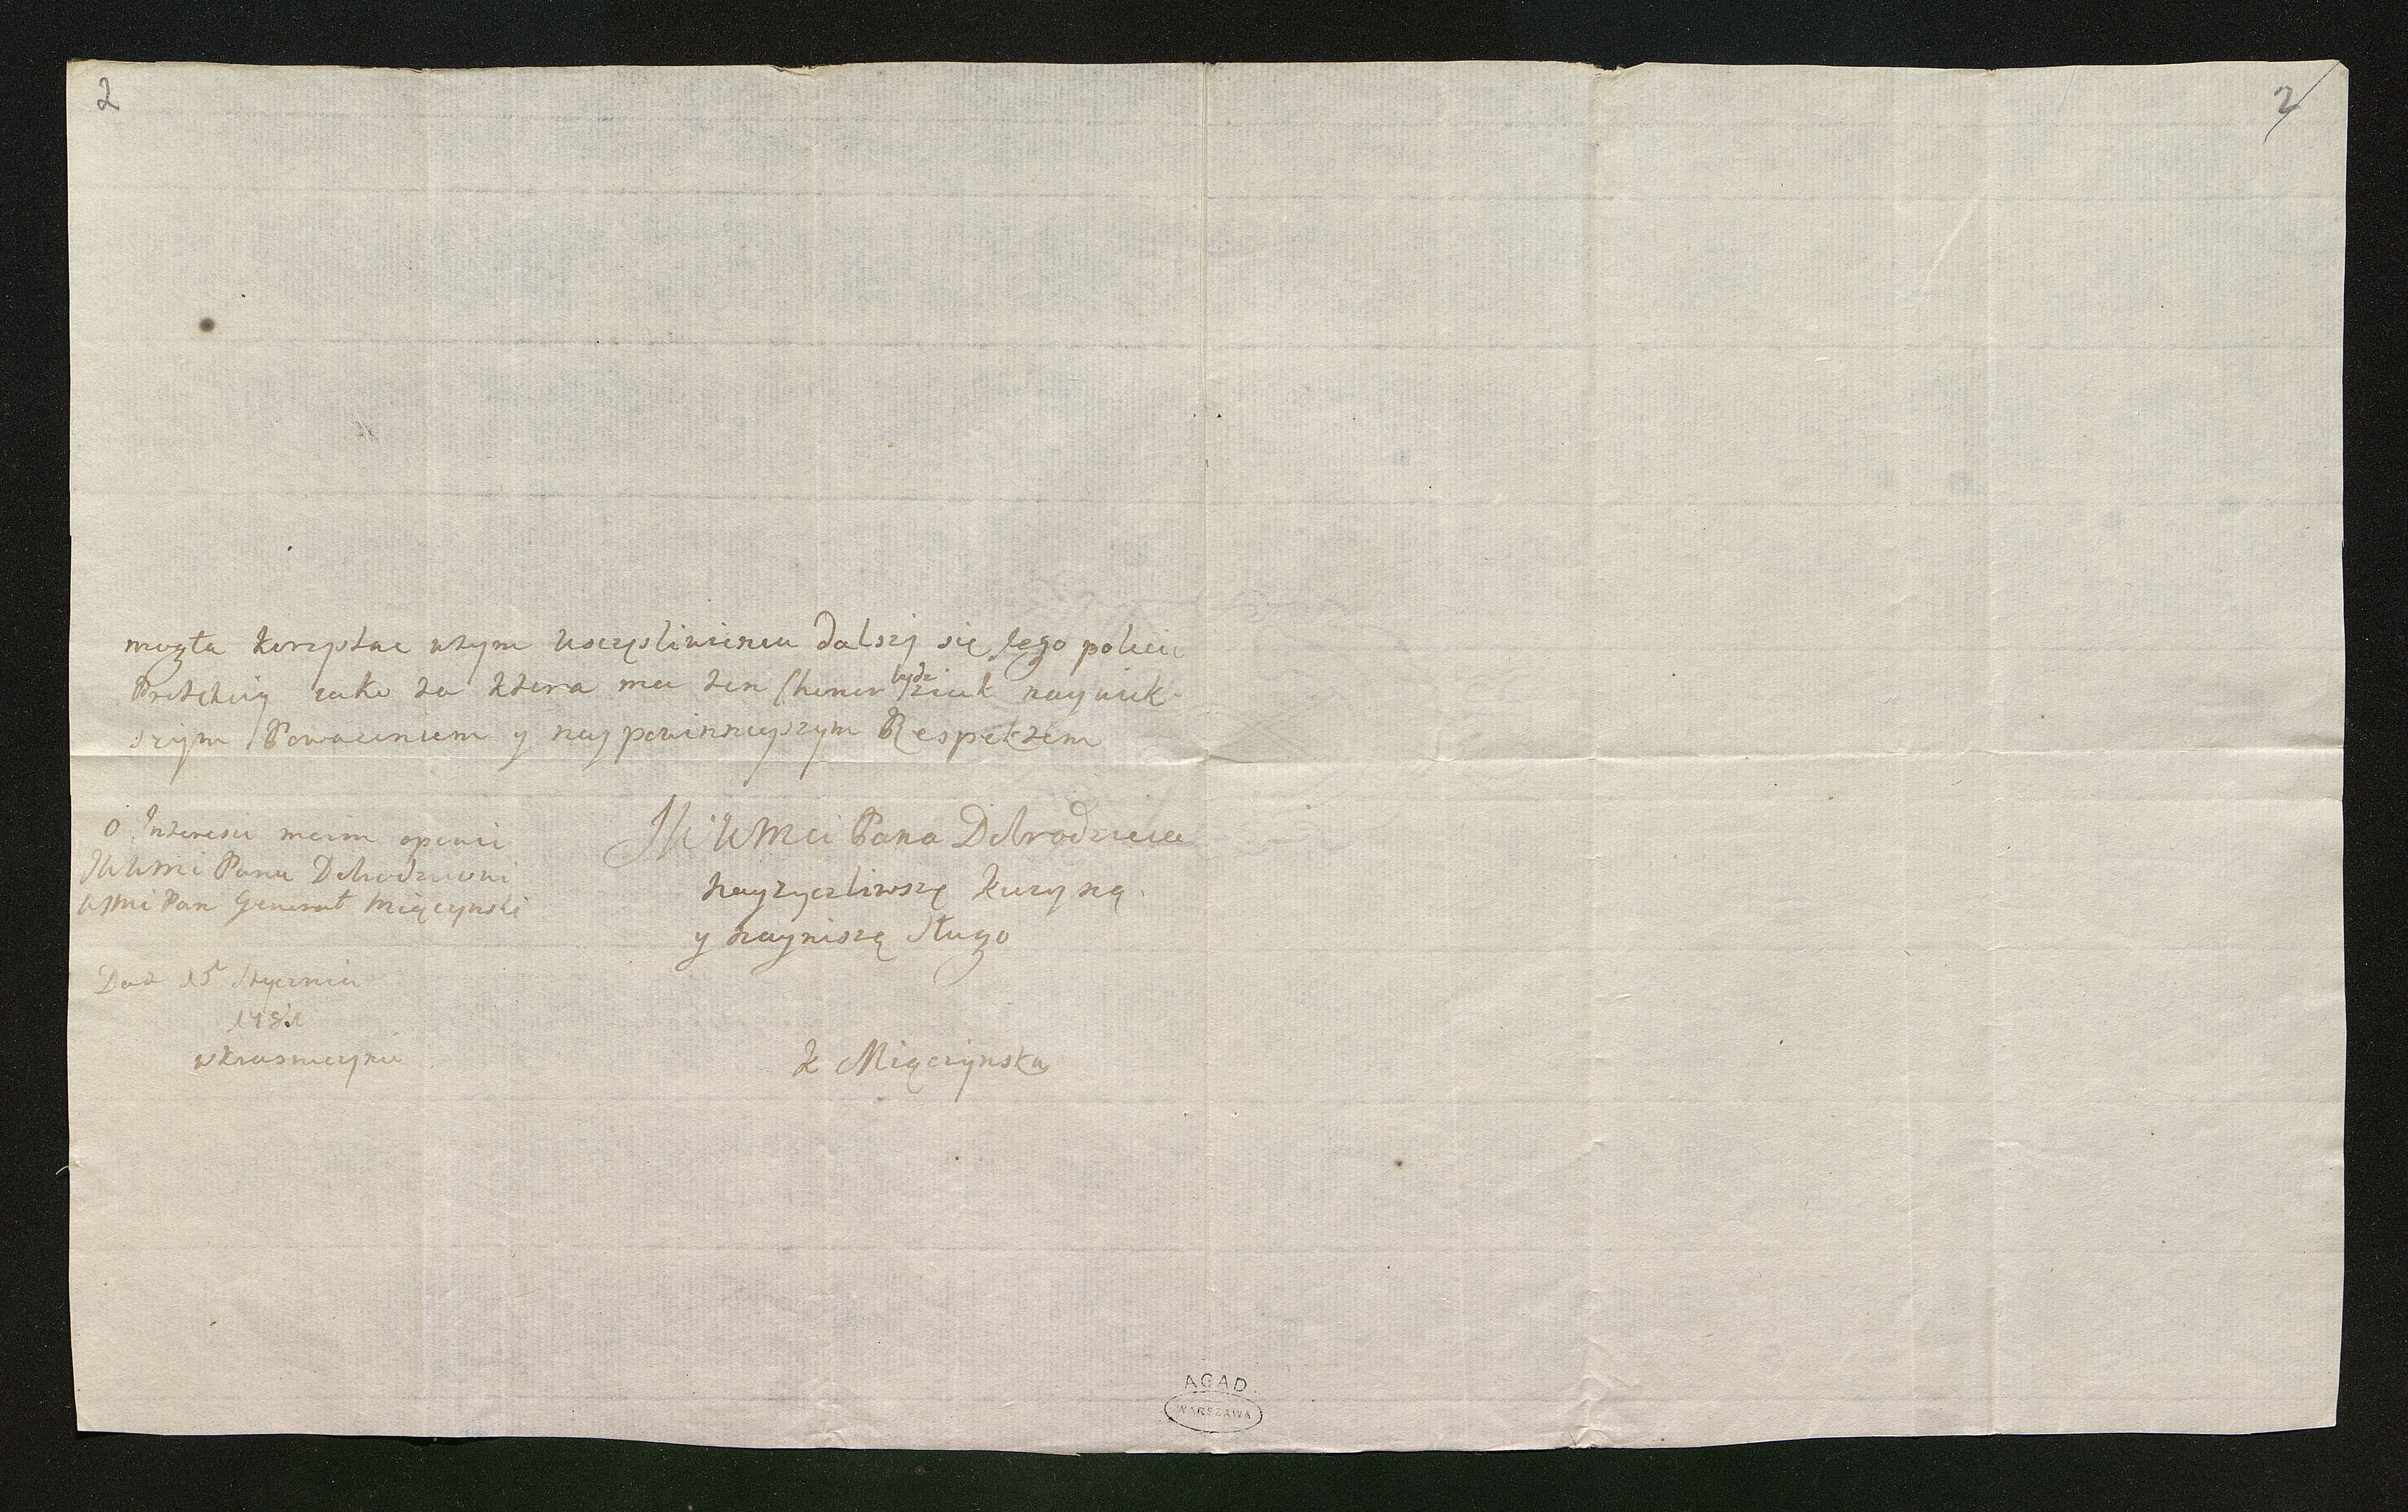 2
2
mogła korzystac wtym Uszczęsliwieniu dalszÿ się Jego poleciс
Protekcÿ iako ta ktora ma ten Chonor bydz ziak naywiek-
szÿm Powazeniem y naypowinnieyszym Respektem
JW WMci Pana Dobrodzieia
nayzyczliwszą kuzyną
y nayniszą Sługo
K Miączynska
O Interesie moim opowie
JW WMci Panu Dobrodzieiowi
WJMć Pan Generał Miączynski
Dat 15 Stycznia
1781
w Krasniczynie
AGAD
WARSZAWA